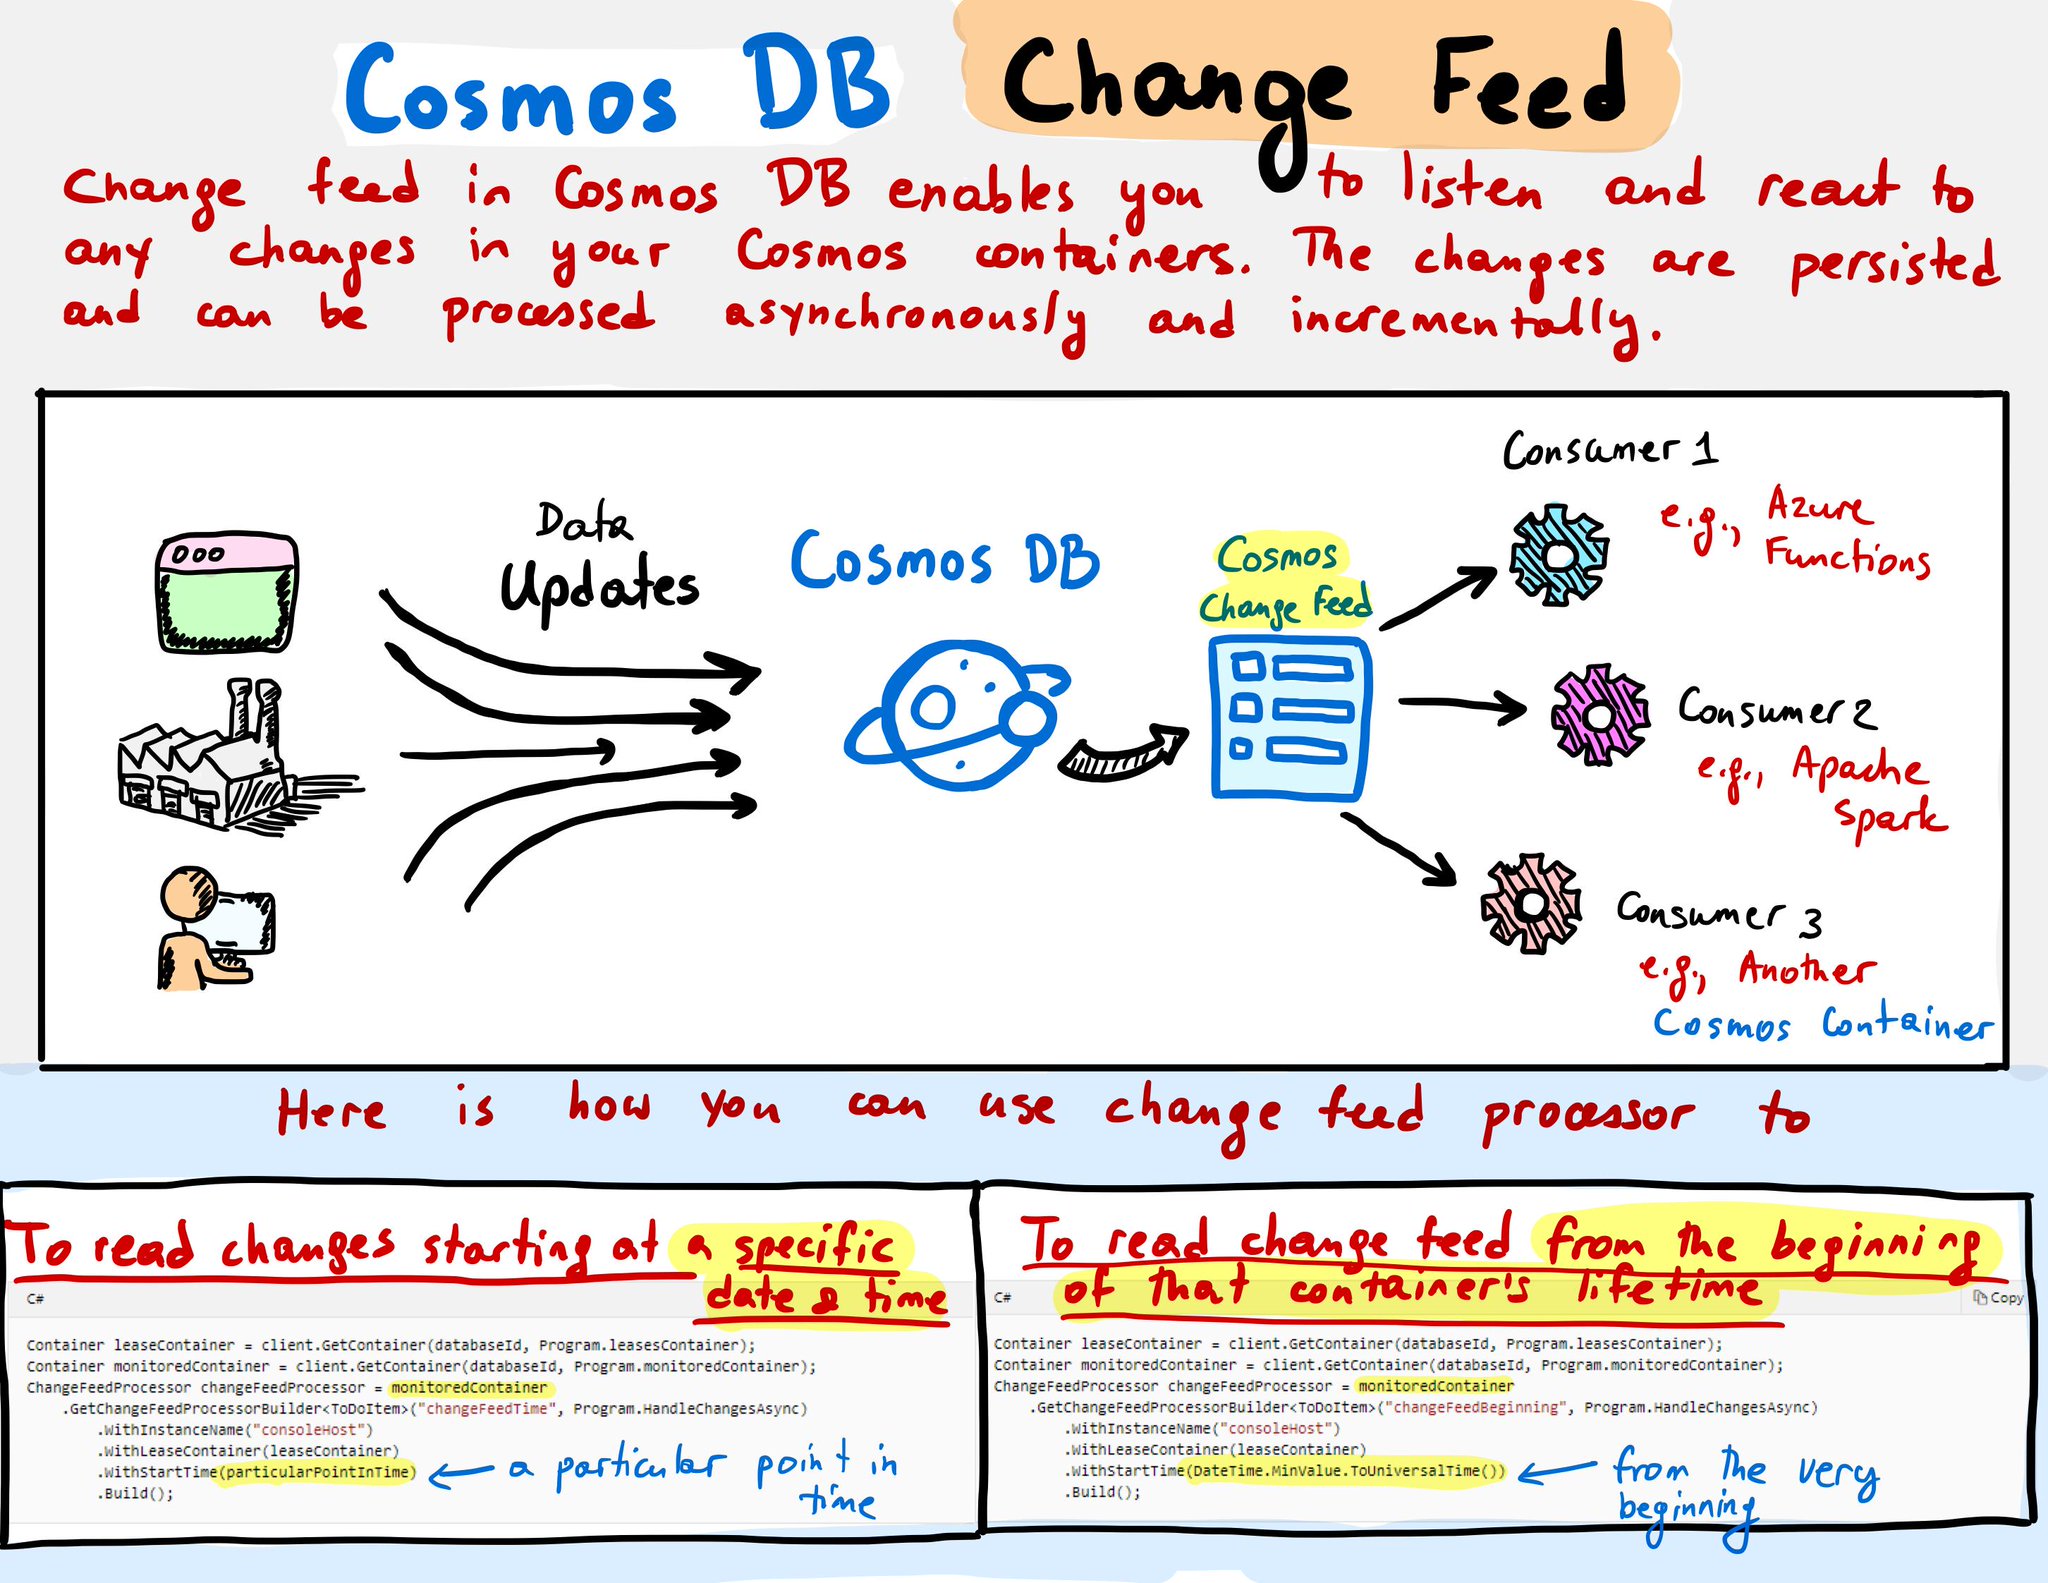 Cosmos DB Change Feed
Change feed in Cosmos DB enables you to listen and react to
any changes in your Cosmos containers. The changes are persisted
and can be processed asynchronously and incrementally.
Data
Updates
Cosmos DB
Cosmos
Change Feed
Consumer 1
e.g., Azure
Functions
Consumer 2
e.g., Apache
Spark
Consumer 3
e.g., Another
Cosmos Container
Here is how you can use change feed processor to
To read changes starting at a specific
date & time
C#
Container leaseContainer = client.GetContainer(databaseId, Program.leasesContainer);
Container monitoredContainer = client.GetContainer(databaseId, Program.monitoredContainer);
ChangeFeedProcessor changeFeedProcessor = monitoredContainer
.GetChangeFeedProcessorBuilder<ToDoItem>("changeFeedTime", Program.HandleChangesAsync)
.WithInstanceName("consoleHost")
.WithLeaseContainer(leaseContainer)
.WithStartTime(particularPointInTime)
.Build();
a particular point in
time
To read change feed from the beginning
of that container's lifetime
C#
Copy
Container leaseContainer = client.GetContainer(databaseId, Program.leasesContainer);
Container monitoredContainer = client.GetContainer(databaseId, Program.monitoredContainer);
ChangeFeedProcessor changeFeedProcessor = monitoredContainer
.GetChangeFeedProcessorBuilder<ToDoItem>("changeFeedBeginning", Program.HandleChangesAsync)
.WithInstanceName("consoleHost")
.WithLeaseContainer(leaseContainer)
.WithStartTime(DateTime.MinValue.ToUniversalTime())
.Build();
from the very
beginning